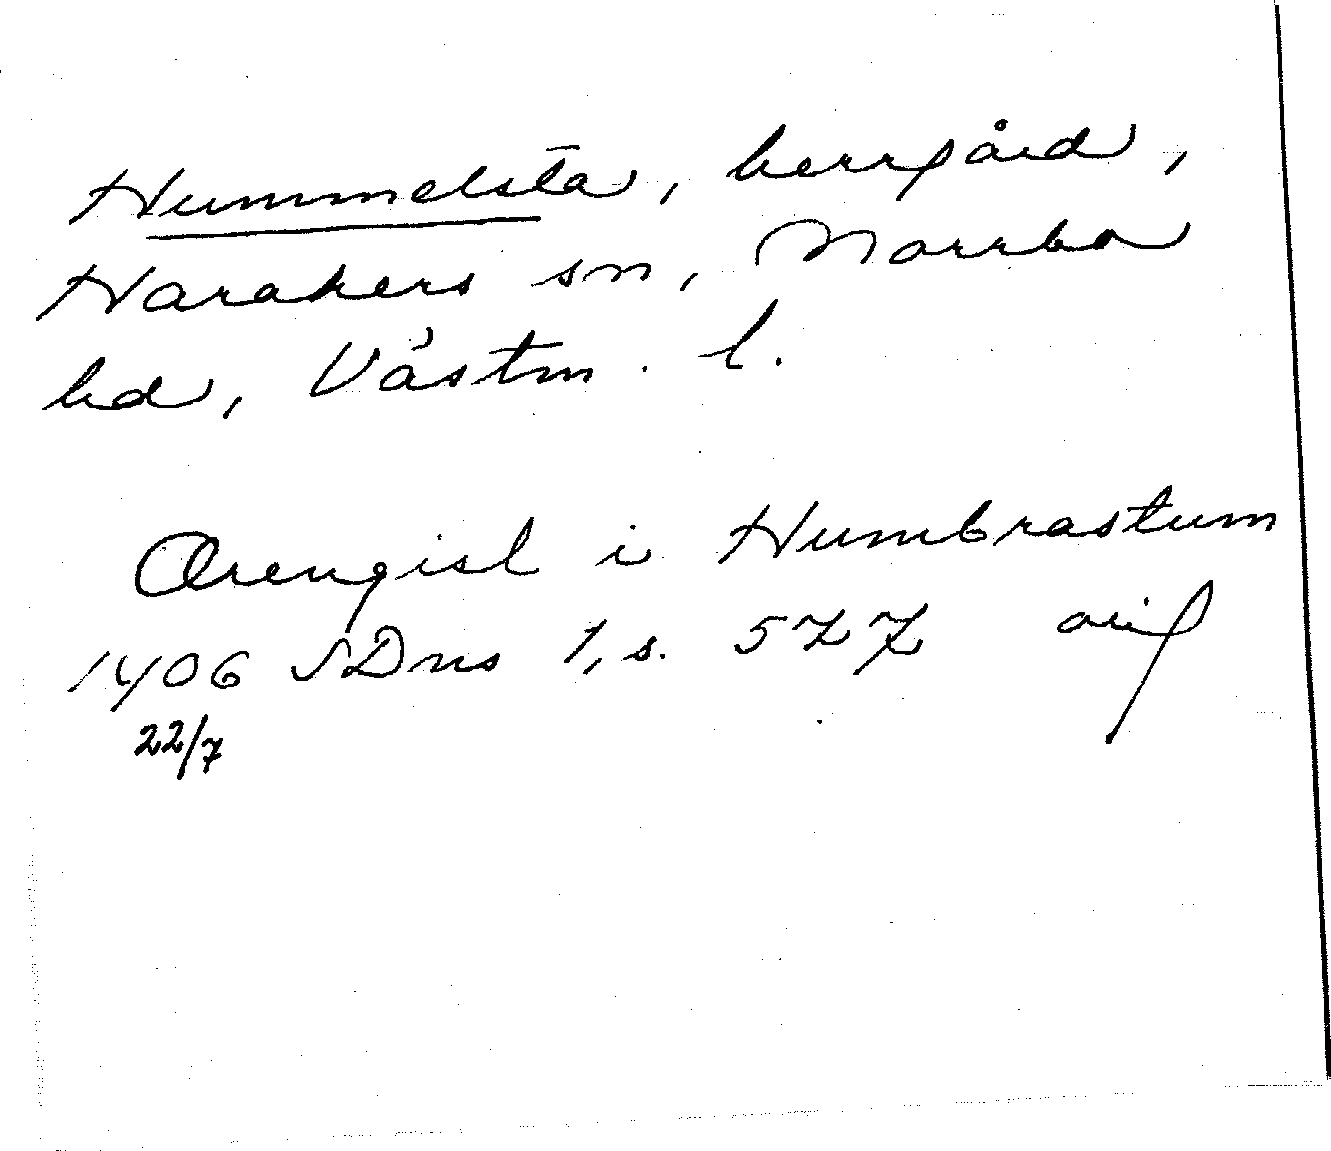 Hummelsta, herrgård,
Harakers sn, Norrbo
hd, Västm. l.
Ærengisl i Humbrastum
1406 SDns 1, s. 577 orig
22/7